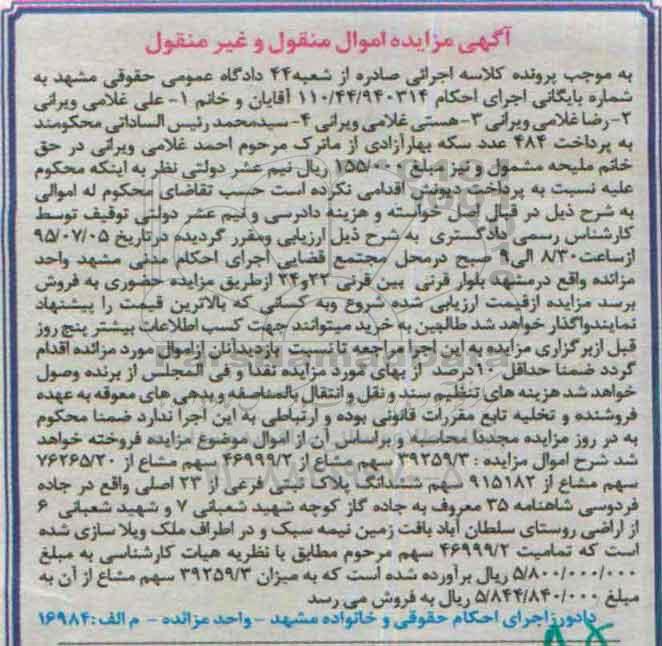 آگهی مزایده اموال منقول و غیر منقول
به موجب پرونده کلاسه اجرائی صادره از شعبه ۴۴ دادگاه عمومی حقوقی مشهد به
شماره بایگانی اجرای احکام ۱۱۰/۴۴/۹۴۰۳۱۴ آقایان و خانم ۱- علی غلامی ویرانی
۲- رضا غلامی ویرانی ۳- هستی غلامی ویرانی ۴- سیدمحمد رئیس الساداتی محکومند
به پرداخت ۴۸۴ عدد سکه بهارآزادی از ماترک مرحوم احمد غلامی ویرانی در حق
خانم ملیحه مشمول و نیز مبلغ ۱۵۵/۰۰۰ ریال نیم عشر دولتی نظر به اینکه محکوم
علیه نسبت به پرداخت دیونش اقدامی نکرده است حسب تقاضای محکوم له اموالی
به شرح ذیل در قبال اصل خواسته و هزینه دادرسی و نیم عشر دولتی توقیف توسط
کارشناس رسمی دادگستری به شرح ذیل ارزیابی ومقرر گردیده درتاریخ ۹۵/۰۷/۰۵
ازساعت ۸/۳۰ الی ۹ صبح درمحل مجتمع قضایی اجرای احکام مدنی مشهد واحد
مزائده واقع درمشهد بلوار قرنی بین قرنی ۲۲و۲۴ ازطریق مزایده حضوری به فروش
برسد مزایده ازقیمت ارزیابی شده شروع وبه کسانی که بالاترین قیمت را پیشنهاد
نمایندواگذار خواهد شد طالبین به خرید میتوانند جهت کسب اطلاعات بیشتر پنج روز
قبل ازبرگزاری مزایده به این اجرا مراجعه تا نسبت بازدیدآنان ازاموال مورد مزائده اقدام
گردد ضمنا حداقل ۱۰درصد از بهای مورد مزایده نقدا و فی المجلس از برنده وصول
خواهد شد هزینه های تنظیم سند و نقل و انتقال بالمناصفه و بدهی های معوقه به عهده
فروشنده و تخلیه تابع مقررات قانونی بوده و ارتباطی به این اجرا ندارد ضمنا محکوم
به در روز مزایده مجددا محاسبه و براساس آن از اموال موضوع مزایده فروخته خواهد
شد شرح اموال مزایده : ۳۹۲۵۹/۳ سهم مشاع از ۴۶۹۹۹/۲ سهم مشاع از ۷۶۲۶۵/۲۰
سهم مشاع از ۹۱۵۱۸۲ سهم ششدانگ پلاک ثبتی فرعی از ۲۳ اصلی واقع در جاده
فردوسی شاهنامه ۳۵ معروف به جاده گاز کوچه شهید شعبانی ۷ و شهید شعبانی ۶
از اراضی روستای سلطان آباد بافت زمین نیمه سبک و در اطراف ملک ویلا سازی شده
است که تمامیت ۴۶۹۹۹/۲ سهم مرحوم مطابق با نظریه هیات کارشناسی به مبلغ
۵/۸۰۰/۰۰۰/۰۰۰ ریال برآورده شده است که به میزان ۳۹۲۵۹/۳ سهم مشاع از آن به
مبلغ ۵/۸۴۴/۸۴۰/۰۰۰ ریال به فروش می رسد
دادورز اجرای احکام حقوقی و خانواده مشهد - واحد مزائده - م الف: ۱۶۹۸۴